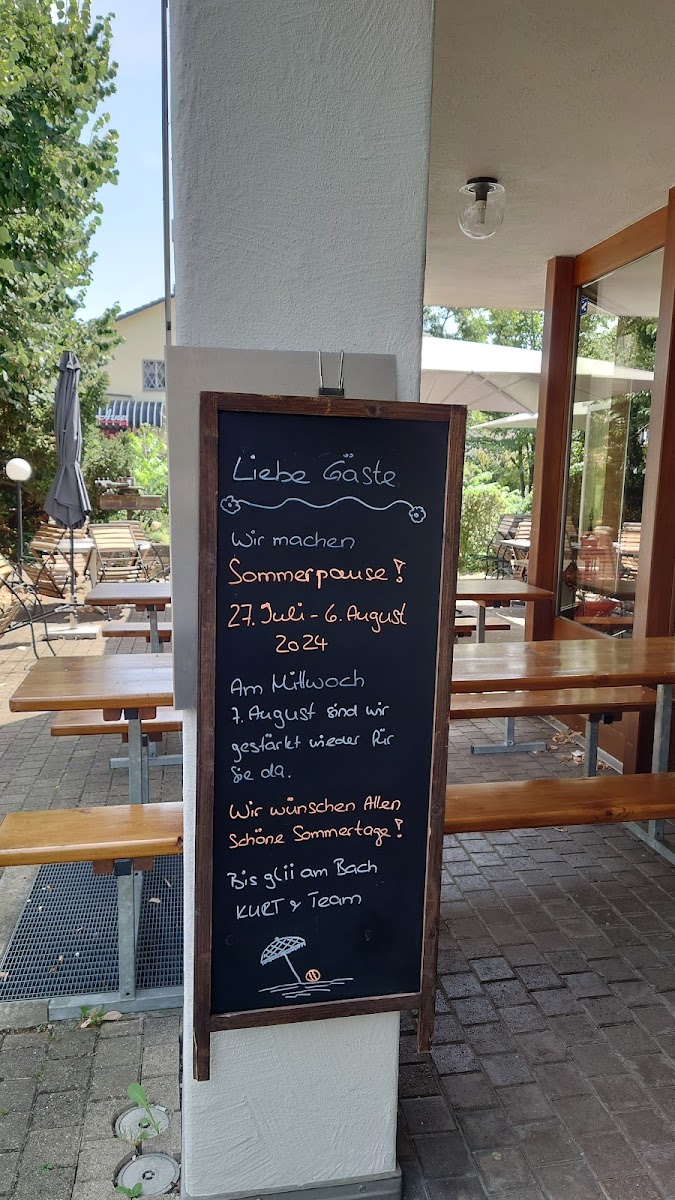 Liebe Gäste
Wir machen
Sommerpause!
27. Juli - 6. August
2024
Am Mittwoch
7. August sind wir
gestärkt wieder für
Sie da.
Wir wünschen Allen
Schöne Sommertage!
Bis glii am Bach
KURT & Team